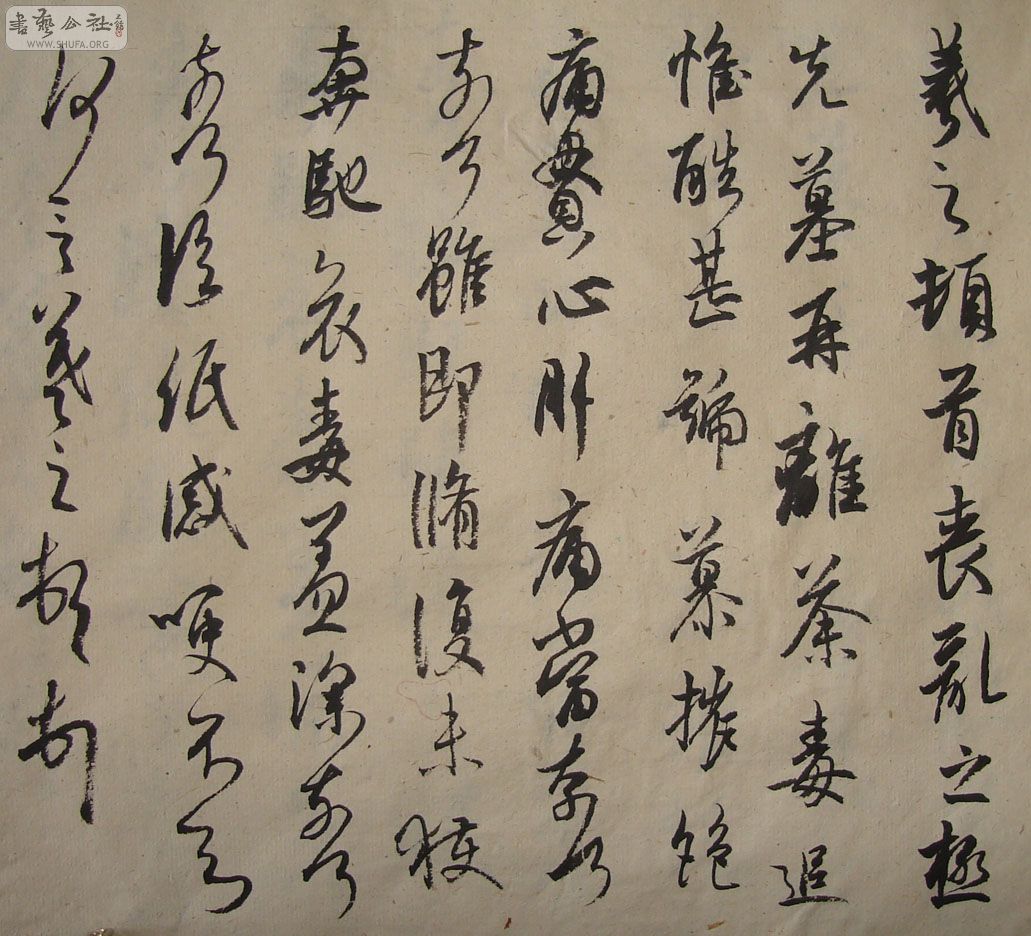 書藝公社
WWW.SHUFA.ORG
羲之頓首喪亂之極
先墓再離荼毒追
惟酷甚號慕摧絕
痛貫心肝痛當奈何
奈何雖即脩復未獲
奔馳哀毒益深奈何
奈何臨紙感哽不知
何言羲之頓首頓首